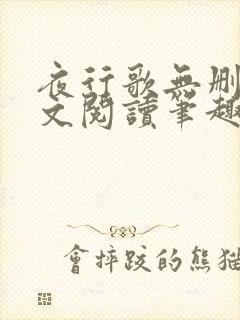 夜行歌無刪
文閱讀筆趣
會摔跤的熊猫